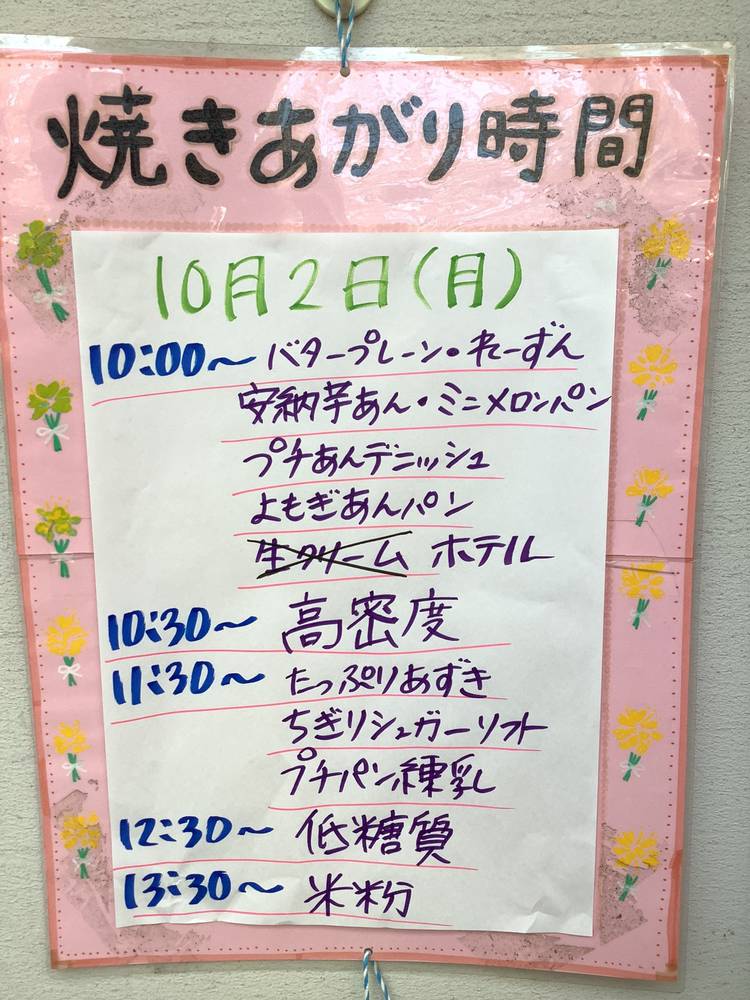 焼きあがり時間
10月2日(月)
10:00〜 バタープレーン・れーずん
安納芋あん・ミニメロンパン
プチあんデニッシュ
よもぎあんパン
生クリーム ホテル
10:30〜 高密度
11:30〜 たっぷりあずき
ちぎりシュガーソフト
プチパン練乳
12:30〜 低糖質
13:30〜 米粉